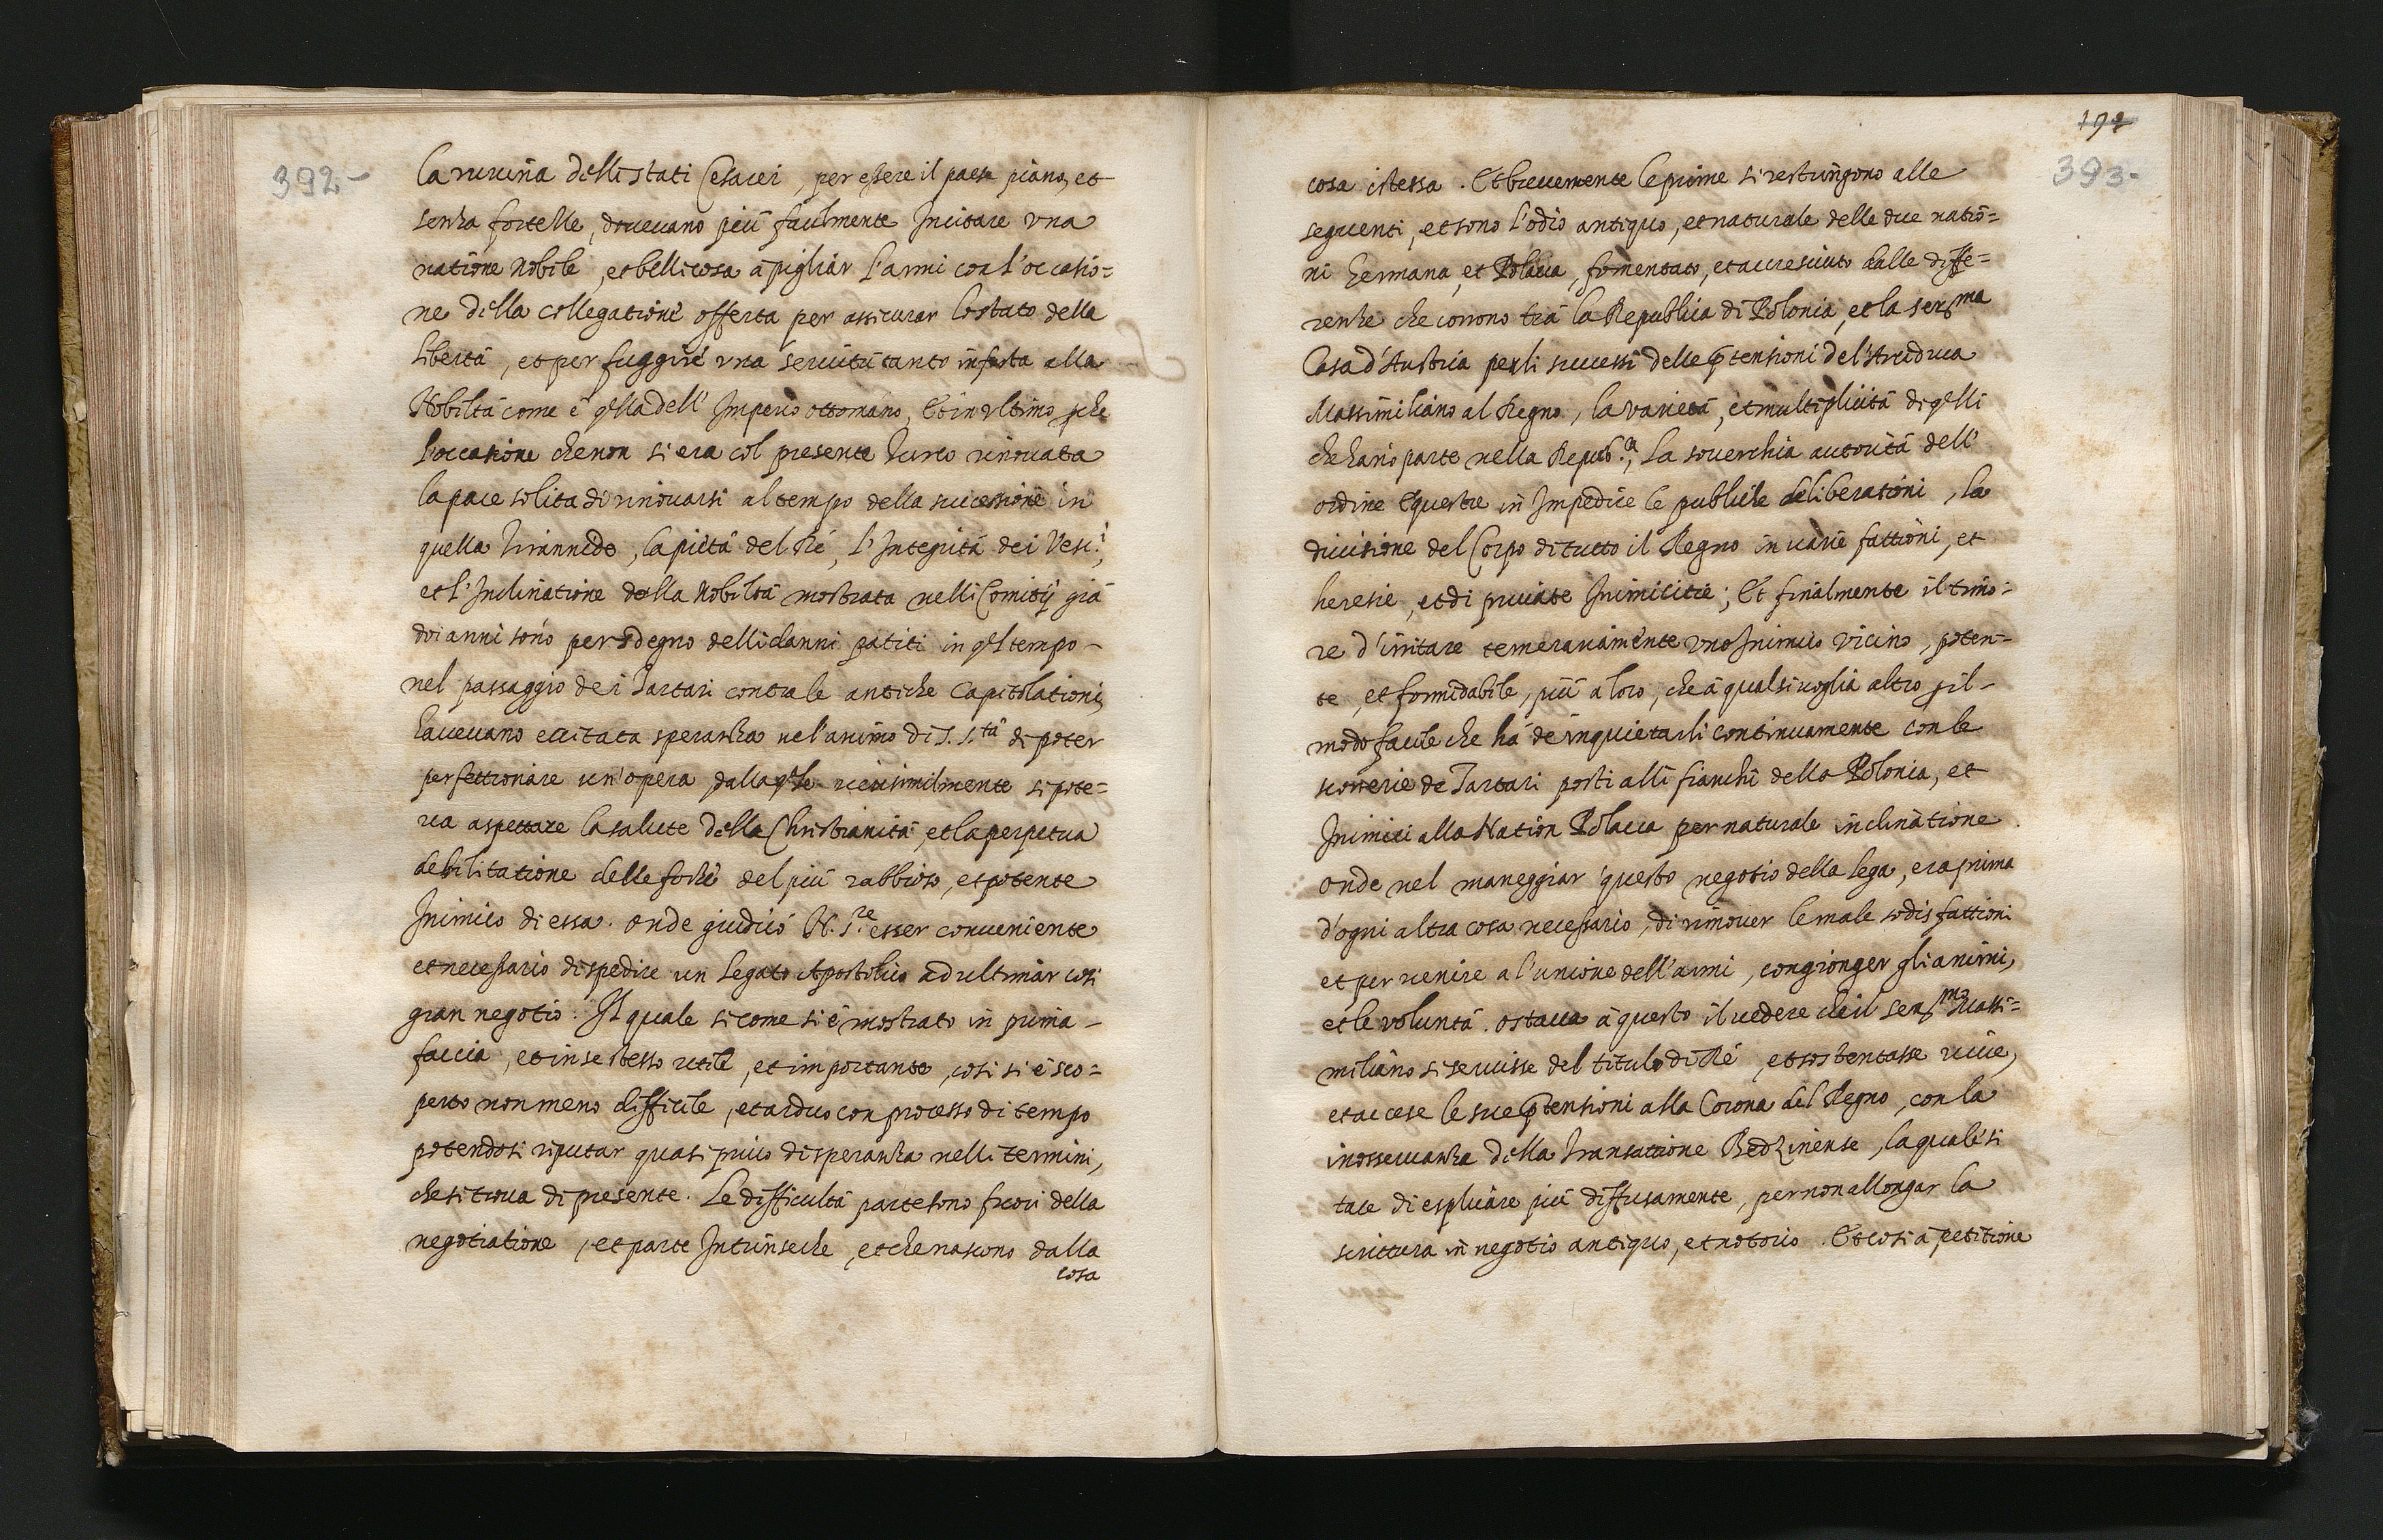 392-
la ruuina delli stati Cesarei, per essere il paese piano, et
senza fortezze, doueuano più facilmente Incitare una
natione Nobile, et bellicosa à pigliàr l'armi con l'occasio=
ne della collegatione offerta per assicurar lo stato della
libertà, et per fuggire una seruitù tanto infesta alla
Nobiltà come è qlla dell' Imperio ottomano, Et in ultimo pche
l'occasione che non si era col presente Turco rinouata
la pace solita di rinouarsi al tempo della successione in
quella Tirannide, la pietà del Ré, l'Integrità dei Vesc.i,
et l'Inclinatione della Nobiltà mostrata nelli Comitij già
doi anni sono per sdegno delli danni patiti in ql tempo-
nel passaggio dei Tartari contra le antiche Capitolationi,
haueuano eccitata speranza nel'animo di S. S.tà di poter
perfettionare un'opera, dalla qle uerisimilmente si pote=
ua aspettare la salute della Christianità, et la perpetua
debilitatione delle forze del più rabbioso, et potente
Inimico di essa. Onde giudicò N. S.re esser conueniente
et necessario di spedire un legato Apostolico ad ultimàr cosi
gran negotio. Il quale si come si è mostrato in prima-
faccia, et in se stesso utile, et importante, cosi si è sco=
perto non meno difficile, et arduo con processo di tempo
potendosi riputar quasi priuo di speranza nelli termini,
che si troua di presente. Le difficultà parte sono fuori della
negotiatione, et parte Intrinseche, et che nascono dalla
cosa
191
393-
cosa istessa. Et breuemente le prime si restringono alle
seguenti, et sono l'odio antiquo, et naturale delle due natio=
ni Germana, et Polacca, fomentato, et accresciuto dalle diffe=
renze che corrono trà la Republica di Polonia, et la ser.ma
Casa d'Austria per li successi delle ptensioni del'Arciduca
Massimiliano al Regno, la varietà, et multiplicità di qlli
che hano parte nella Repub.ca, La souerchia autorità dell'
ordine Equestre in Impedire le publiche deliberationi, la
diuisione del Corpo di tutto il Regno in uarie fattioni, et
heresie, et di priuate Inimicitie; Et finalmente il timo=
re d'irritare temerariamente uno Inimico vicino, poten=
te, et formidabile, più a loro, che à qual si uoglia altro pil-
modo facile che hà de inquietarli continuamente con le
scorrerie de Tartari posti alli fianchi della Polonia, et
Inimici alla Nation Polacca per naturale inclinatione
onde nel maneggiar questo negotio della lega, era prima
d'ogni altra cosa necessario, di rimouer le male sodisfattioni
et per uenire a l'unione dell'armi, congionger gli animi,
et le voluntà. ostaua à questo il uedere che il ser.mo Massi=
miliano si seruisse del titulo di Ré, et sostentasse uiue,
et accese le sue ptensioni alla Corona del Regno, con la
inosseruanza della Transattione Bedzinense, la quale si
tace di esplicare più diffusamente, per non allongar la
scrittura in negotio antiquo, et notorio. Et cosi à petitione